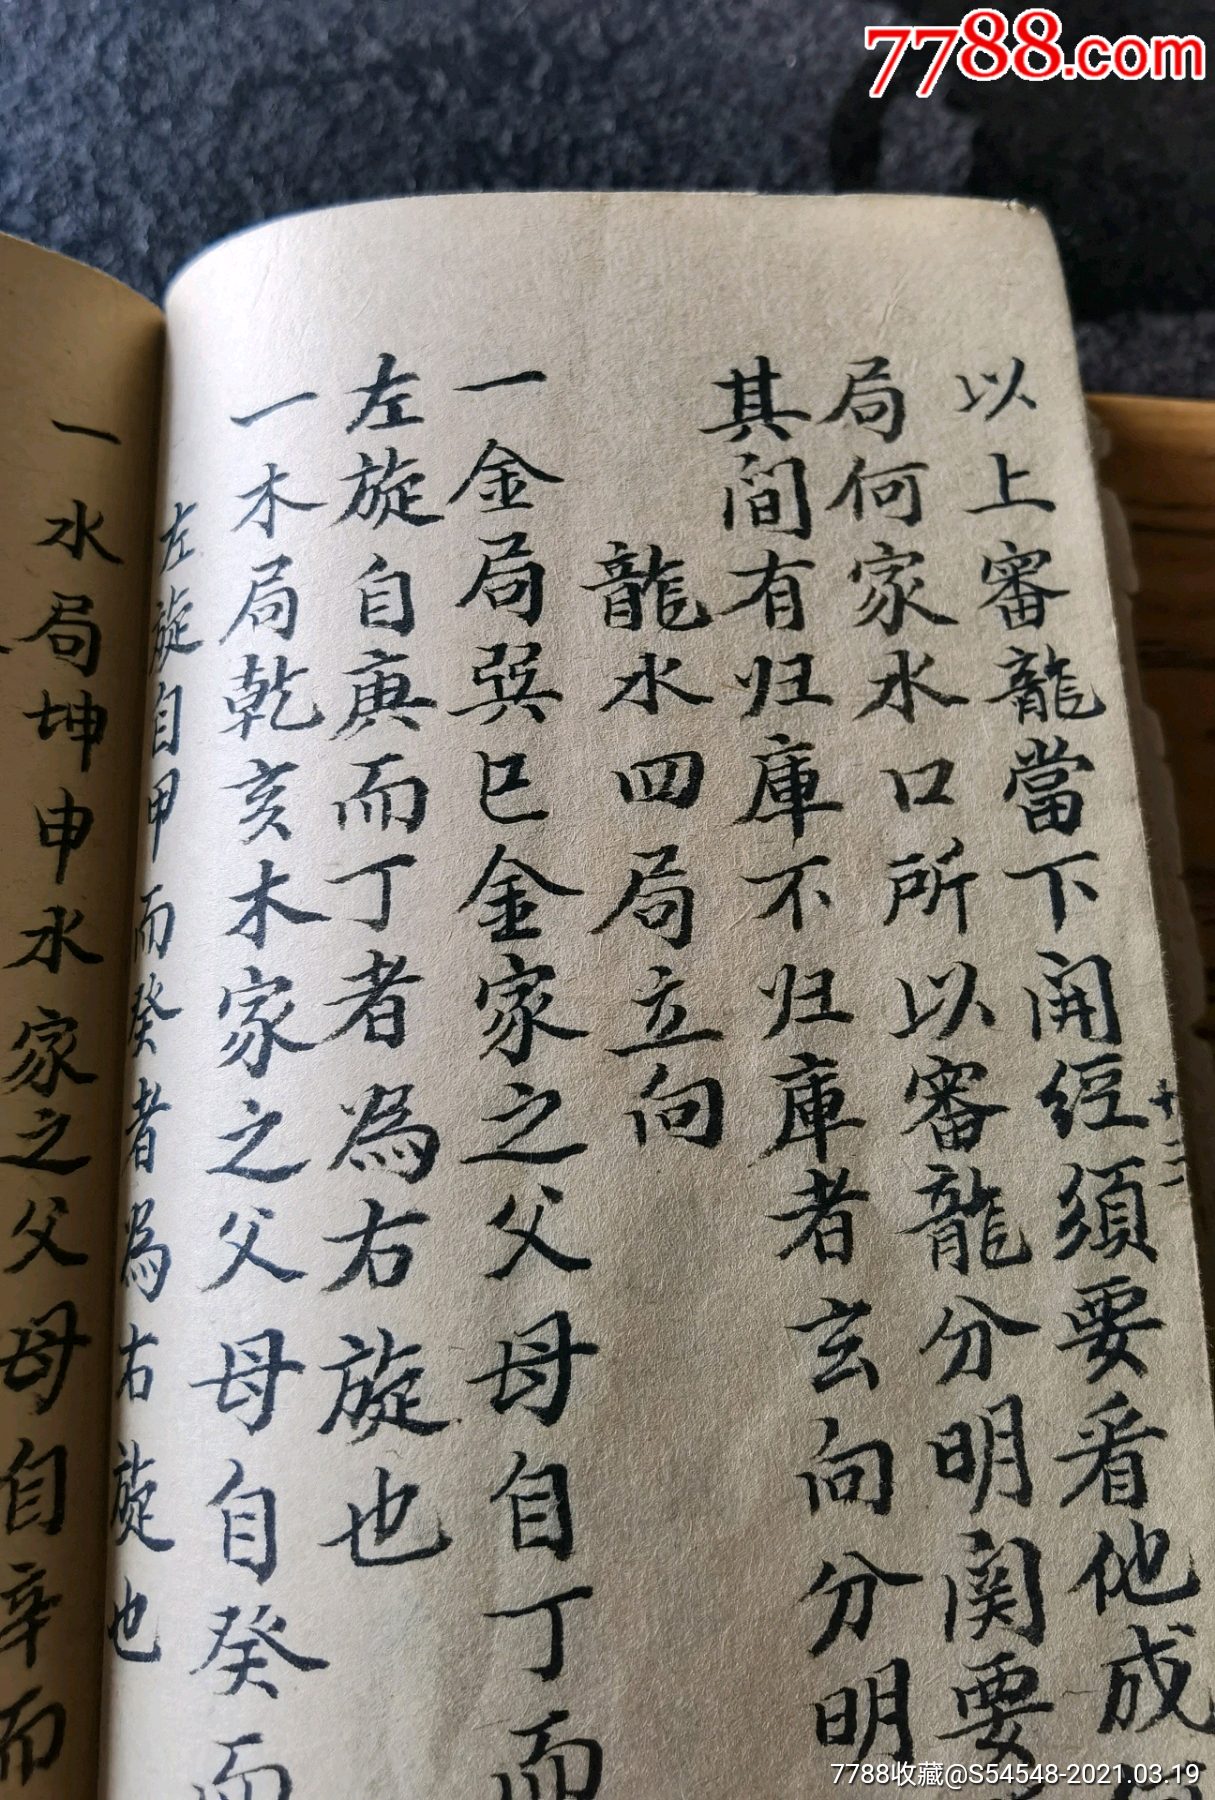 7788.com
以上審龍當下開经須要看他成
局何家水口所以審龍分明関要
其间有归庫不归庫者玄向分明
龍水四局立向
一金局巽巳金家之父母自丁而
左旋自庚而丁者為右旋也
一木局乾亥木家之父母自癸而
左旋自甲而癸者為右旋也
一水局坤申水家之父母自辛而
十二
7788收藏@S54548-2021.03.19